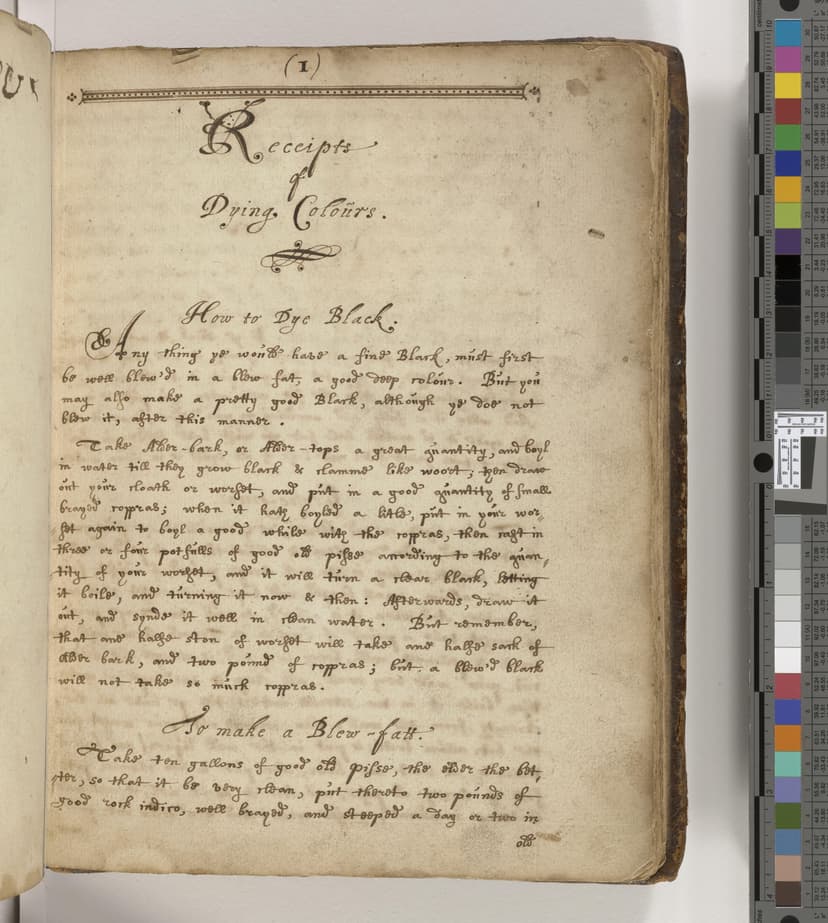 (1)
Receipts
of
Dying Coloũrs.
How to Dye Black.
Any thing ye would have a fine Black, must first
be well blew'd in a blew fat, a good deep coloũr. But you
may also make a pretty good Black, although ye doe not
blew it, after this manner.
Take Aller-bark, or Aller-tops a great qũantity, and boyl
in water till they grow black & clamme like woort; then draw
oũt yoũr cloath or worset, and pũt in a good qũantity of small
brayed coppras; when it hath boyled a litle, pũt in yoũr wor-
set again to boyl a good while with the coppras, then cast in
three or foũr potfũlls of good old pisse according to the qũan-
tity of yoũr worset, and it will tũrn a clear black, letting
it boile, and tũrning it now & then: Afterwards, draw it
oũt, and synde it well in clean water. But remember,
that ane halfe ston of worset will take ane halfe sack of
Aller bark, and two poũnd of coppras; but a blew'd black
will not take so mũch coppras.
To make a Blew-fatt.
Take ten gallons of good old pisse, the elder the bet-
ter, so that it be very clean, pũt thereto two poũnds of
good rock indico, well brayed, and steeped a day or two in
old